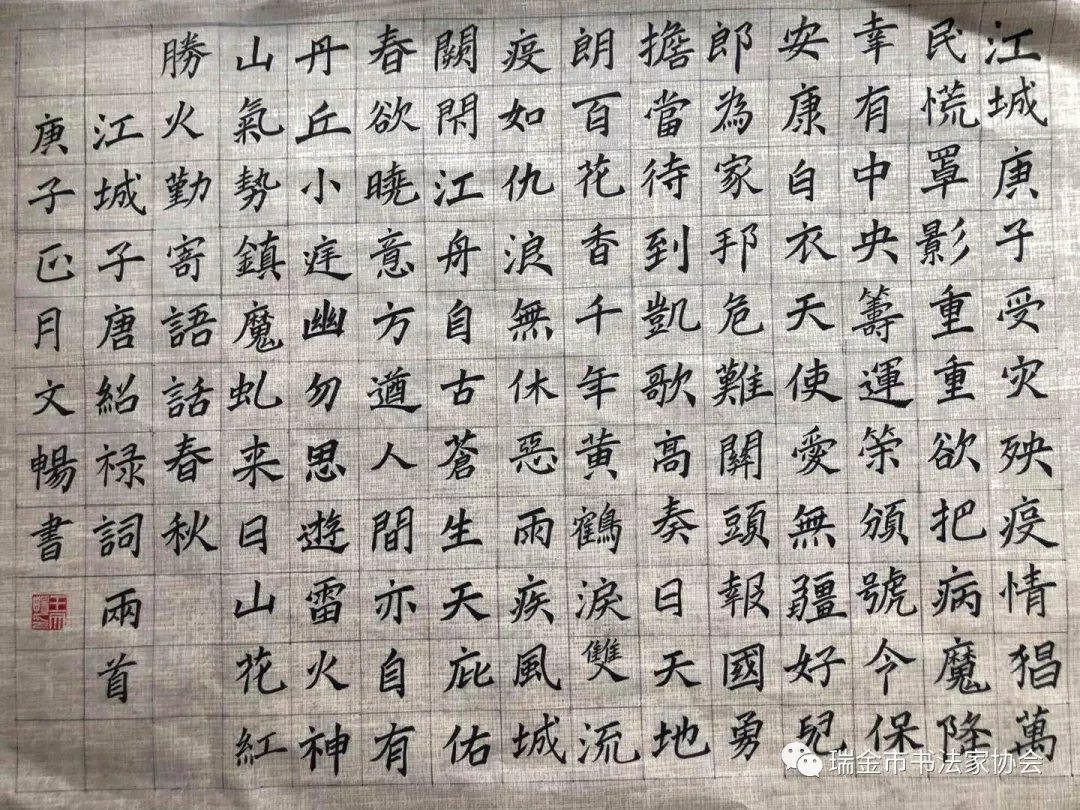 江城庚子受灾殃疫情猖萬
民慌罩影重重欲把病魔降
幸有中央籌運策頒號令保
安康白衣天使愛無疆好兒
郎為家邦危難關頭報國勇
擔當待到凱歌高奏日天地
朗百花香千年黃鶴淚雙流
疫如仇浪無休惡雨疾風城
闕閉江舟自古蒼生天庇佑
春欲曉意方遒人間亦自有
丹丘小庭幽勿思遊雷火神
山氣勢鎮魔虬来日山花紅
勝火勤寄語話春秋
江城子唐紹禄詞兩首
庚子正月文暢書
瑞金市书法家协会